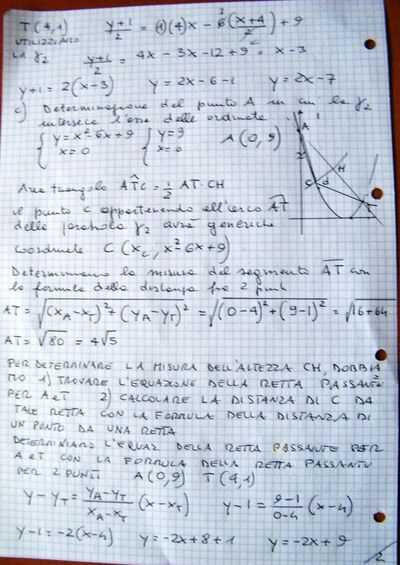 T(4,1) y+1/2 = (1)(4)x - 6(x+4)/2 + 9
UTILIZZANDO
LA γ2 y+1/2 = 4x - 3x - 12 + 9 = x - 3
y+1 = 2(x-3) y = 2x-6-1 y = 2x-7
c) Determinazione del punto A in cui la γ2
interseca l'asse delle ordinate
{ y = x²-6x+9 { y = 9 A(0,9)
x = 0 x = 0
A
H
C d
T
Area triangolo ATC = 1/2 AT·CH
il punto C appartenendo all'arco AT
della parabola γ2 avrà generiche
coordinate C(xc, x²-6x+9)
Determiniamo la misura del segmento AT con
la formula della distanza fra 2 punti
AT = √(xA-xT)²+(yA-yT)² = √(0-4)²+(9-1)² = √16+64
AT = √80 = 4√5
PER DETERMINARE LA MISURA DELL'ALTEZZA CH, DOBBIA
MO 1) TROVARE L'EQUAZIONE DELLA RETTA PASSANTE
PER A e T 2) CALCOLARE LA DISTANZA DI C DA
TALE RETTA CON LA FORMULA DELLA DISTANZA DI
UN PUNTO DA UNA RETTA
DETERMINIAMO L'EQUAZ. DELLA RETTA PASSANTE PER
A e T CON LA FORMULA DELLA RETTA PASSANTE
PER 2 PUNTI A(0,9) T(4,1)
y-yT = yA-yT/xA-xT (x-xT) y-1 = 9-1/0-4 (x-4)
y-1 = -2(x-4) y = -2x+8+1 y = -2x+9
2